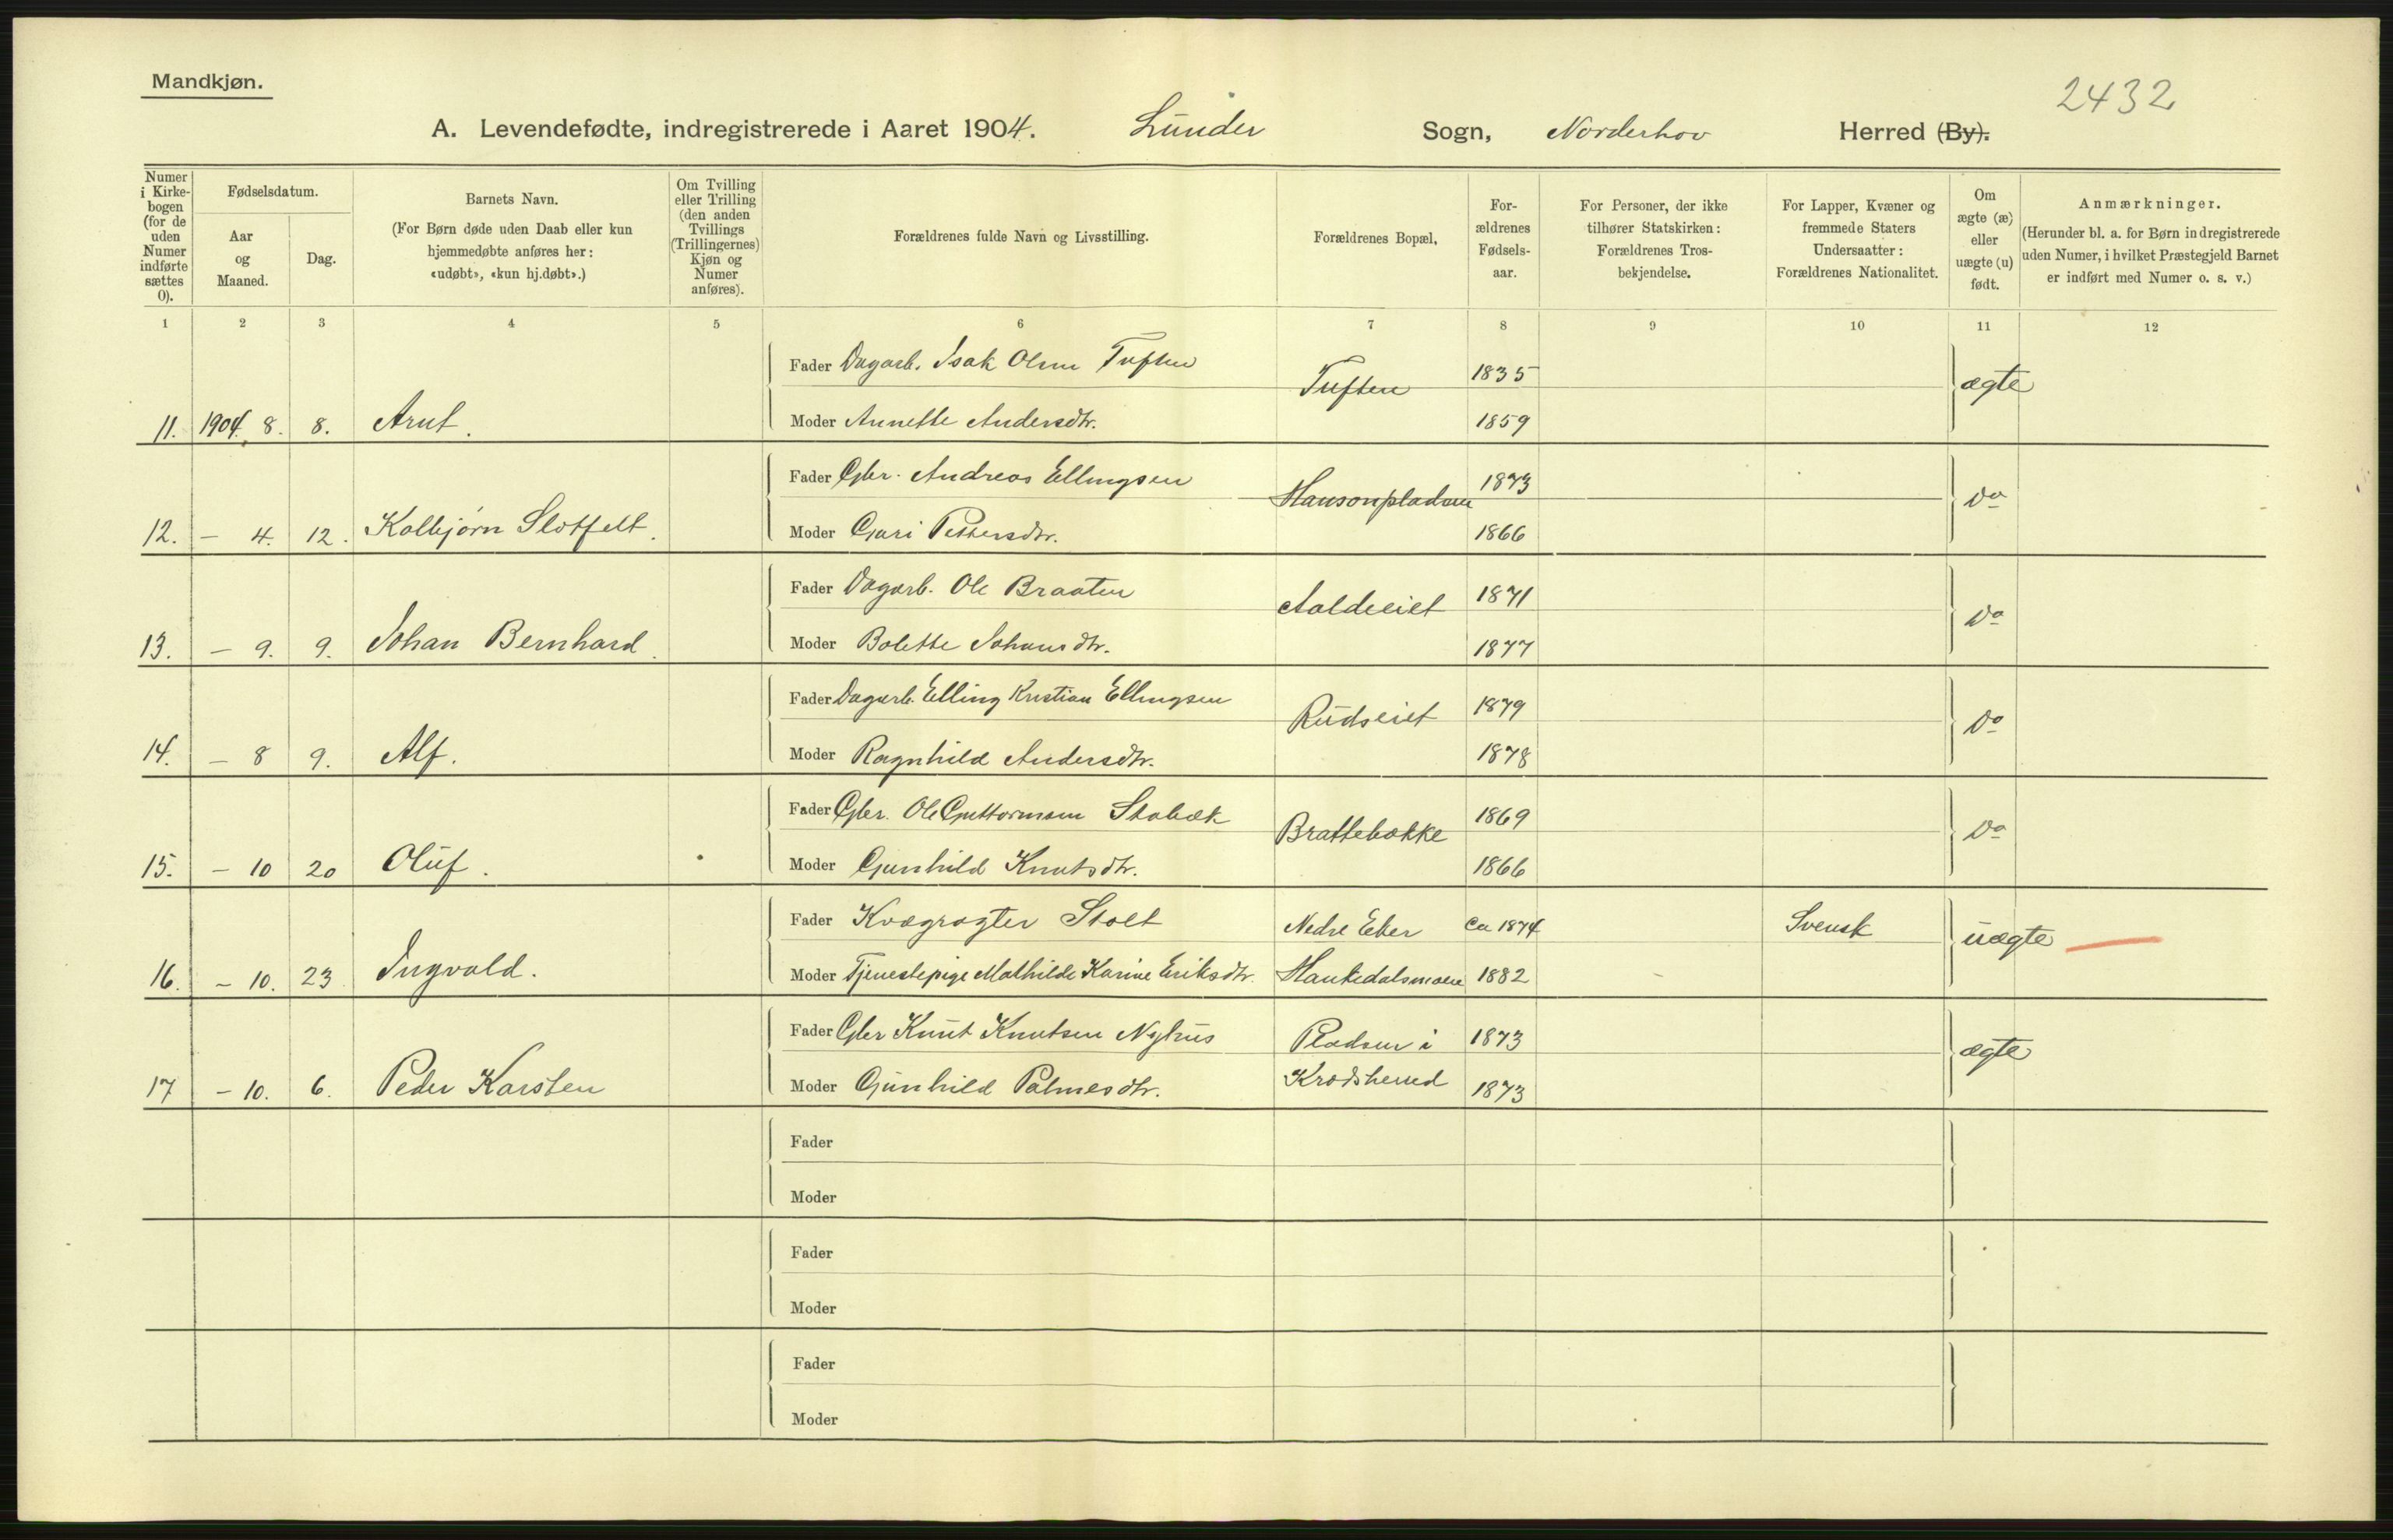 Mandkjøn.
2432
A. Levendefødte, indregistrerede i Aaret 1904. Lunder Sogn, Norderhov Herred (By).
Numer i Kirkebogen (for de uden Numer indførte sættes 0).
Fødselsdatum.
Aar og Maaned.
Dag.
Barnets Navn.
(For Børn døde uden Daab eller kun hjemmedøbte anføres her: «udøbt», «kun hj.døbt».)
Om Tvilling eller Trilling (den anden Tvillings (Trillingernes) Kjøn og Numer anføres).
Forældrenes fulde Navn og Livsstilling.
Forældrenes Bopæl,
Forældrenes Fødselsaar.
For Personer, der ikke tilhører Statskirken: Forældrenes Trosbekjendelse.
For Lapper, Kvæner og fremmede Staters Undersaatter: Forældrenes Nationalitet.
Om ægte (æ) eller uægte (u) født.
Anmærkninger.
(Herunder bl. a. for Børn indregistrerede uden Numer, i hvilket Præstegjeld Barnet er indført med Numer o. s. v.)
1 2 3 4 5 6 7 8 9 10 11 12
Fader Dagarb. Isak Olsen Tuften Tuften 1835 ægte
11. 1904. 8. 8. Arnt. Moder Annette Andersdtr. 1859
Fader Gbr. Andreas Ellingsen 1873 Do
12. - 4. 12. Kolbjørn Slotfelt. Moder Guri Pettersdtr. 1866
Fader Dagarb. Ole Braaten 1871 Do
13. - 9. 9. Johan Bernhard. Moder Bolette Johansdtr. 1877
Fader Dagarb. Elling Kristian Ellingsen Rudseiet 1879 Do
14. - 8 9. Alf. Moder Ragnhild Andersdtr. 1878
Fader Gbr. Ole Guttormsen Brattebakke 1869 Do
15. - 10 20 Oluf. Moder Gunhild Knutsdtr. 1866
Fader Kvægrøgter Stolt Nedre Eker ca 1874 Svensk uægte
16. - 10. 23 Ingvald. Moder Tjenestepige Mathilde Karine Eriksdtr. 1882
Fader Gbr Knut Knutsen Nyhus Pladsen i 1873 ægte
17 - 10. 6. Peder Karsten Moder Gunhild Palmesdtr. Krødsherred 1873
Fader
Moder
Fader
Moder
Fader
Moder